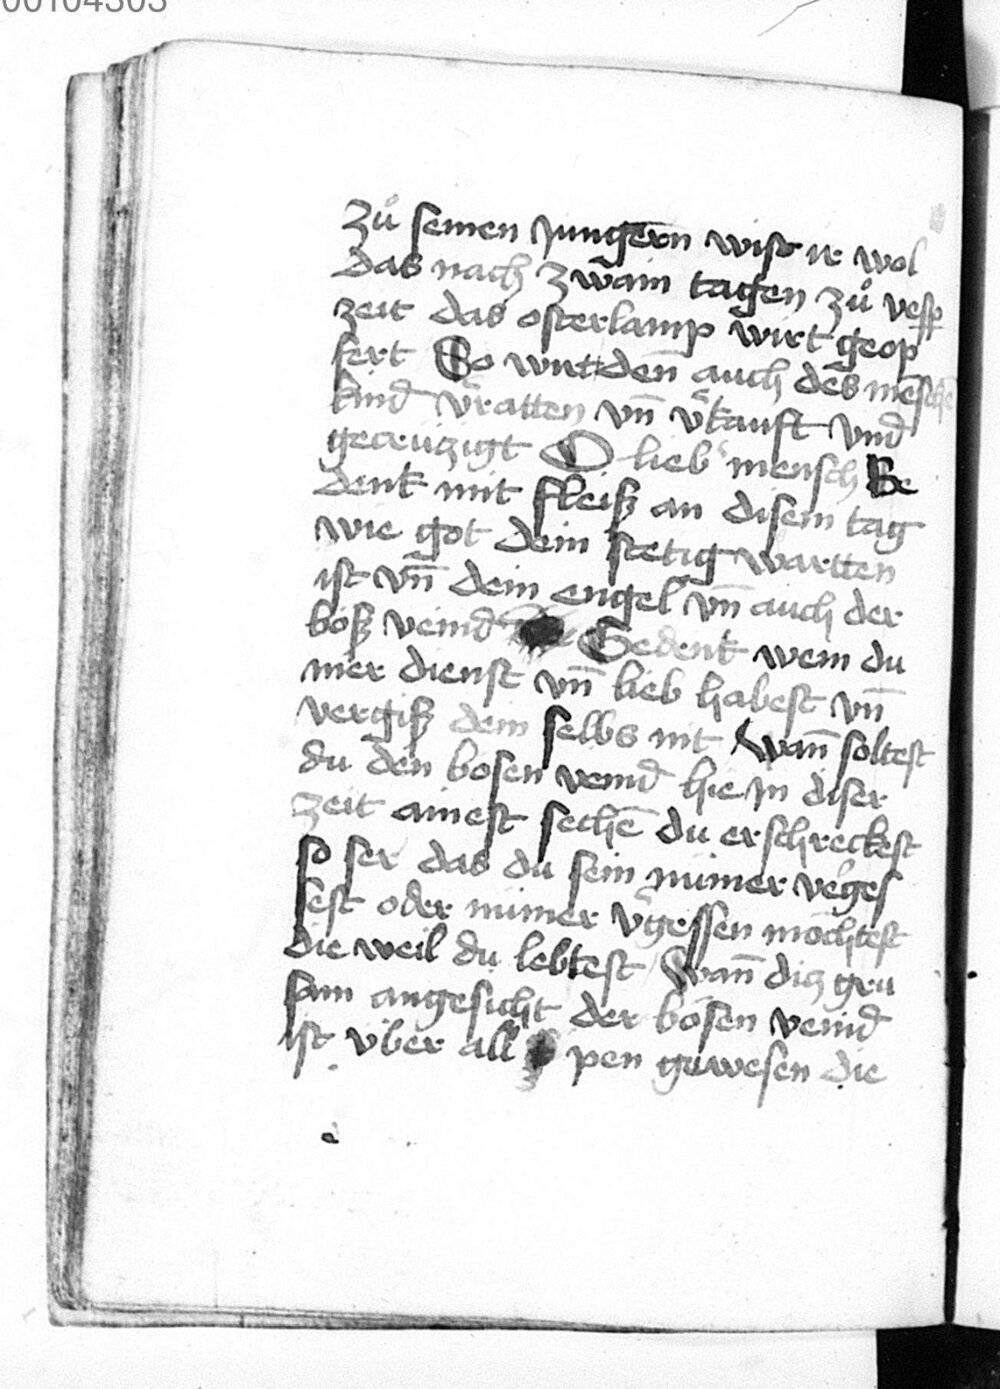 00104303
zů seinen Jungern wist ir wol
das nach zwain tagen zů vesp
zeit das osterlamp wirt geop
fert So wirt den̄ auch des mēschē
kind v̄ratten vn̄ v̄kauft vnd
gecreuzigt O lieb mensch Be
denk mit fleiß an disem tag
wie got dein stetig wartten
ist vn̄ dein engel vn̄ auch der
böß veind Gedenk wem du
mer dienst vn̄ lieb habest vn̄
vergiß dein selbs nit Wan̄ soltest
du den bosen veind hie Jn diser
zeit ainest sechē du erschreckest
so ser das du sein nimer v̄ges
sest oder nimer v̄gessen möchtest
die weil du lebtest Wan̄ dis gru
sam angesicht der bösen veind
ist vber all pen gewesen die